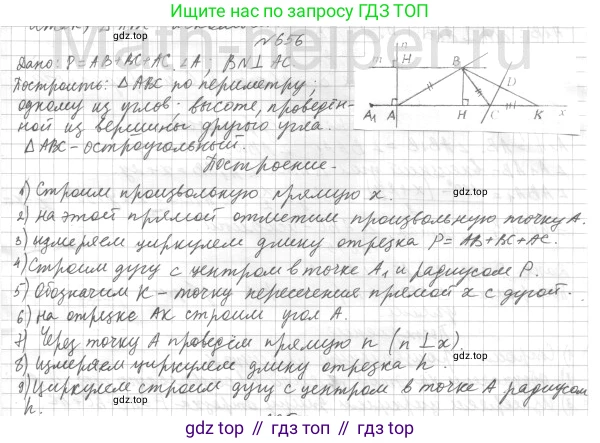 Ищите нас по запросу ГДЗ ТОП
Math-helper.ru
№656
Дано: P=AB+BC+AC, ∠A; BN⊥AC
Построить: △ABC по периметру,
одному из углов; высоте, проведён-
ной из вершины другого угла.
△ABC-остроугольный.
Построение.
1) Строим произвольную прямую x.
2) На этой прямой отметим произвольную точку A.
3) измеряем циркулем длину отрезка P=AB+BC+AC.
4) Строим дугу с центром в точке A₁ и радиусом P.
5) Обозначим K - точку пересечения прямой x с дугой.
6) на отрезке AK строим угол A.
7) Через точку A проведём прямую n (n⊥x).
8) измеряем циркулем длину отрезка h.
9) Циркулем строим дугу с центром в точке A радиусом
h.
n
H
B
D
A₁
A
H
C
K
x
gdz.top
gdz.top
gdz.top
gdz.top
gdz.top
gdz.top
gdz.top // gdz.top // gdz.top